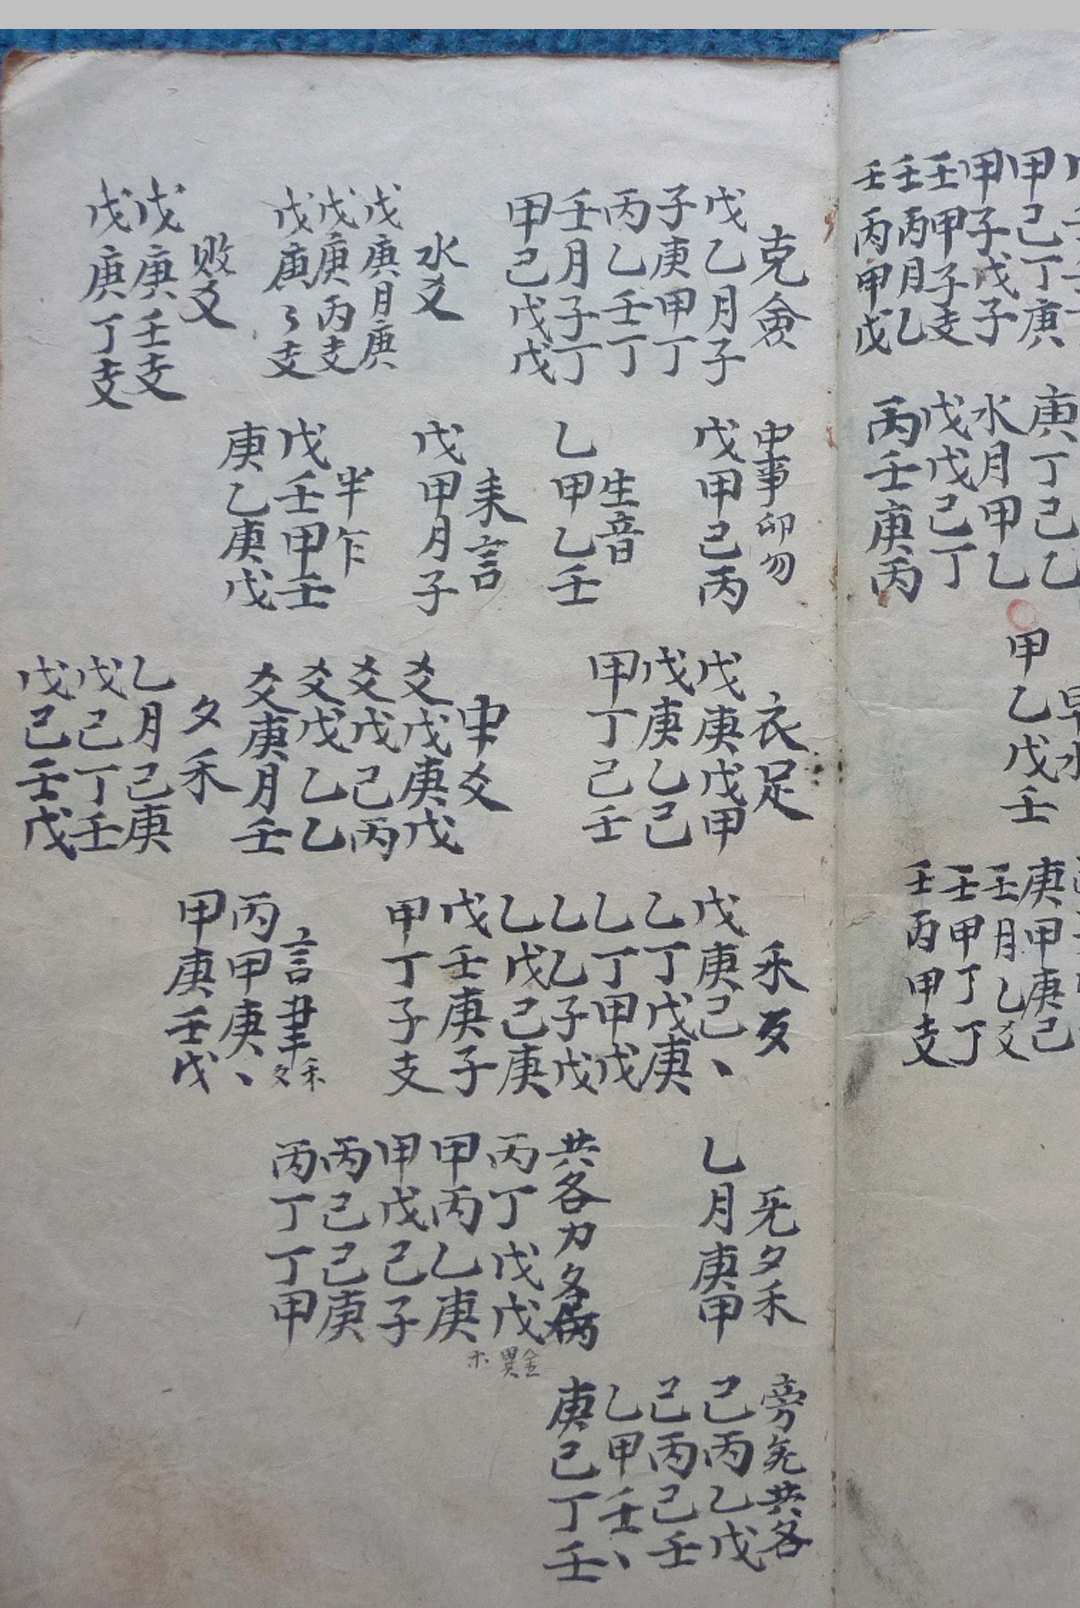 壬丙甲戊
壬丙月乙
壬甲子支
甲子戊子
甲己丁庚
庚丁己乙
水月甲乙
戊戊己丁
丙壬庚丙
甲乙戊壬
庚甲庚己
壬月乙爻
壬甲丁丁
壬丙甲支
克僉
戊乙月子
子庚甲丁
丙乙壬丁
壬月子丁
甲己戊戊
水爻
戊庚月庚
戊庚丙支
戊庚々支
败爻
戊庚壬支
戊庚丁支
中事卯勿
戊甲己丙
生音
乙甲乙壬
耒言
戊甲月子
半乍
戊壬甲壬
庚乙庚戊
衣足
戊庚戊甲
戊庚乙己
甲丁己壬
申爻
爻戊庚戊
爻戊己丙
爻戊乙乙
爻庚月壬
夕禾
乙月己庚
戊己丁壬
戊己壬戊
戊庚己、
乙丁戊庚
乙丁甲戊
乙乙子戊
乙戊己庚
戊壬庚子
甲丁子支
言聿
禾
丙甲庚、
甲庚壬戊
旡夕禾
乙月庚甲
共各力
丙丁戊戊
甲丙乙庚
甲戊己子
丙己己庚
丙丁丁甲
旁旡共各
己丙乙戊
己丙己壬
乙甲壬、
庚己丁壬